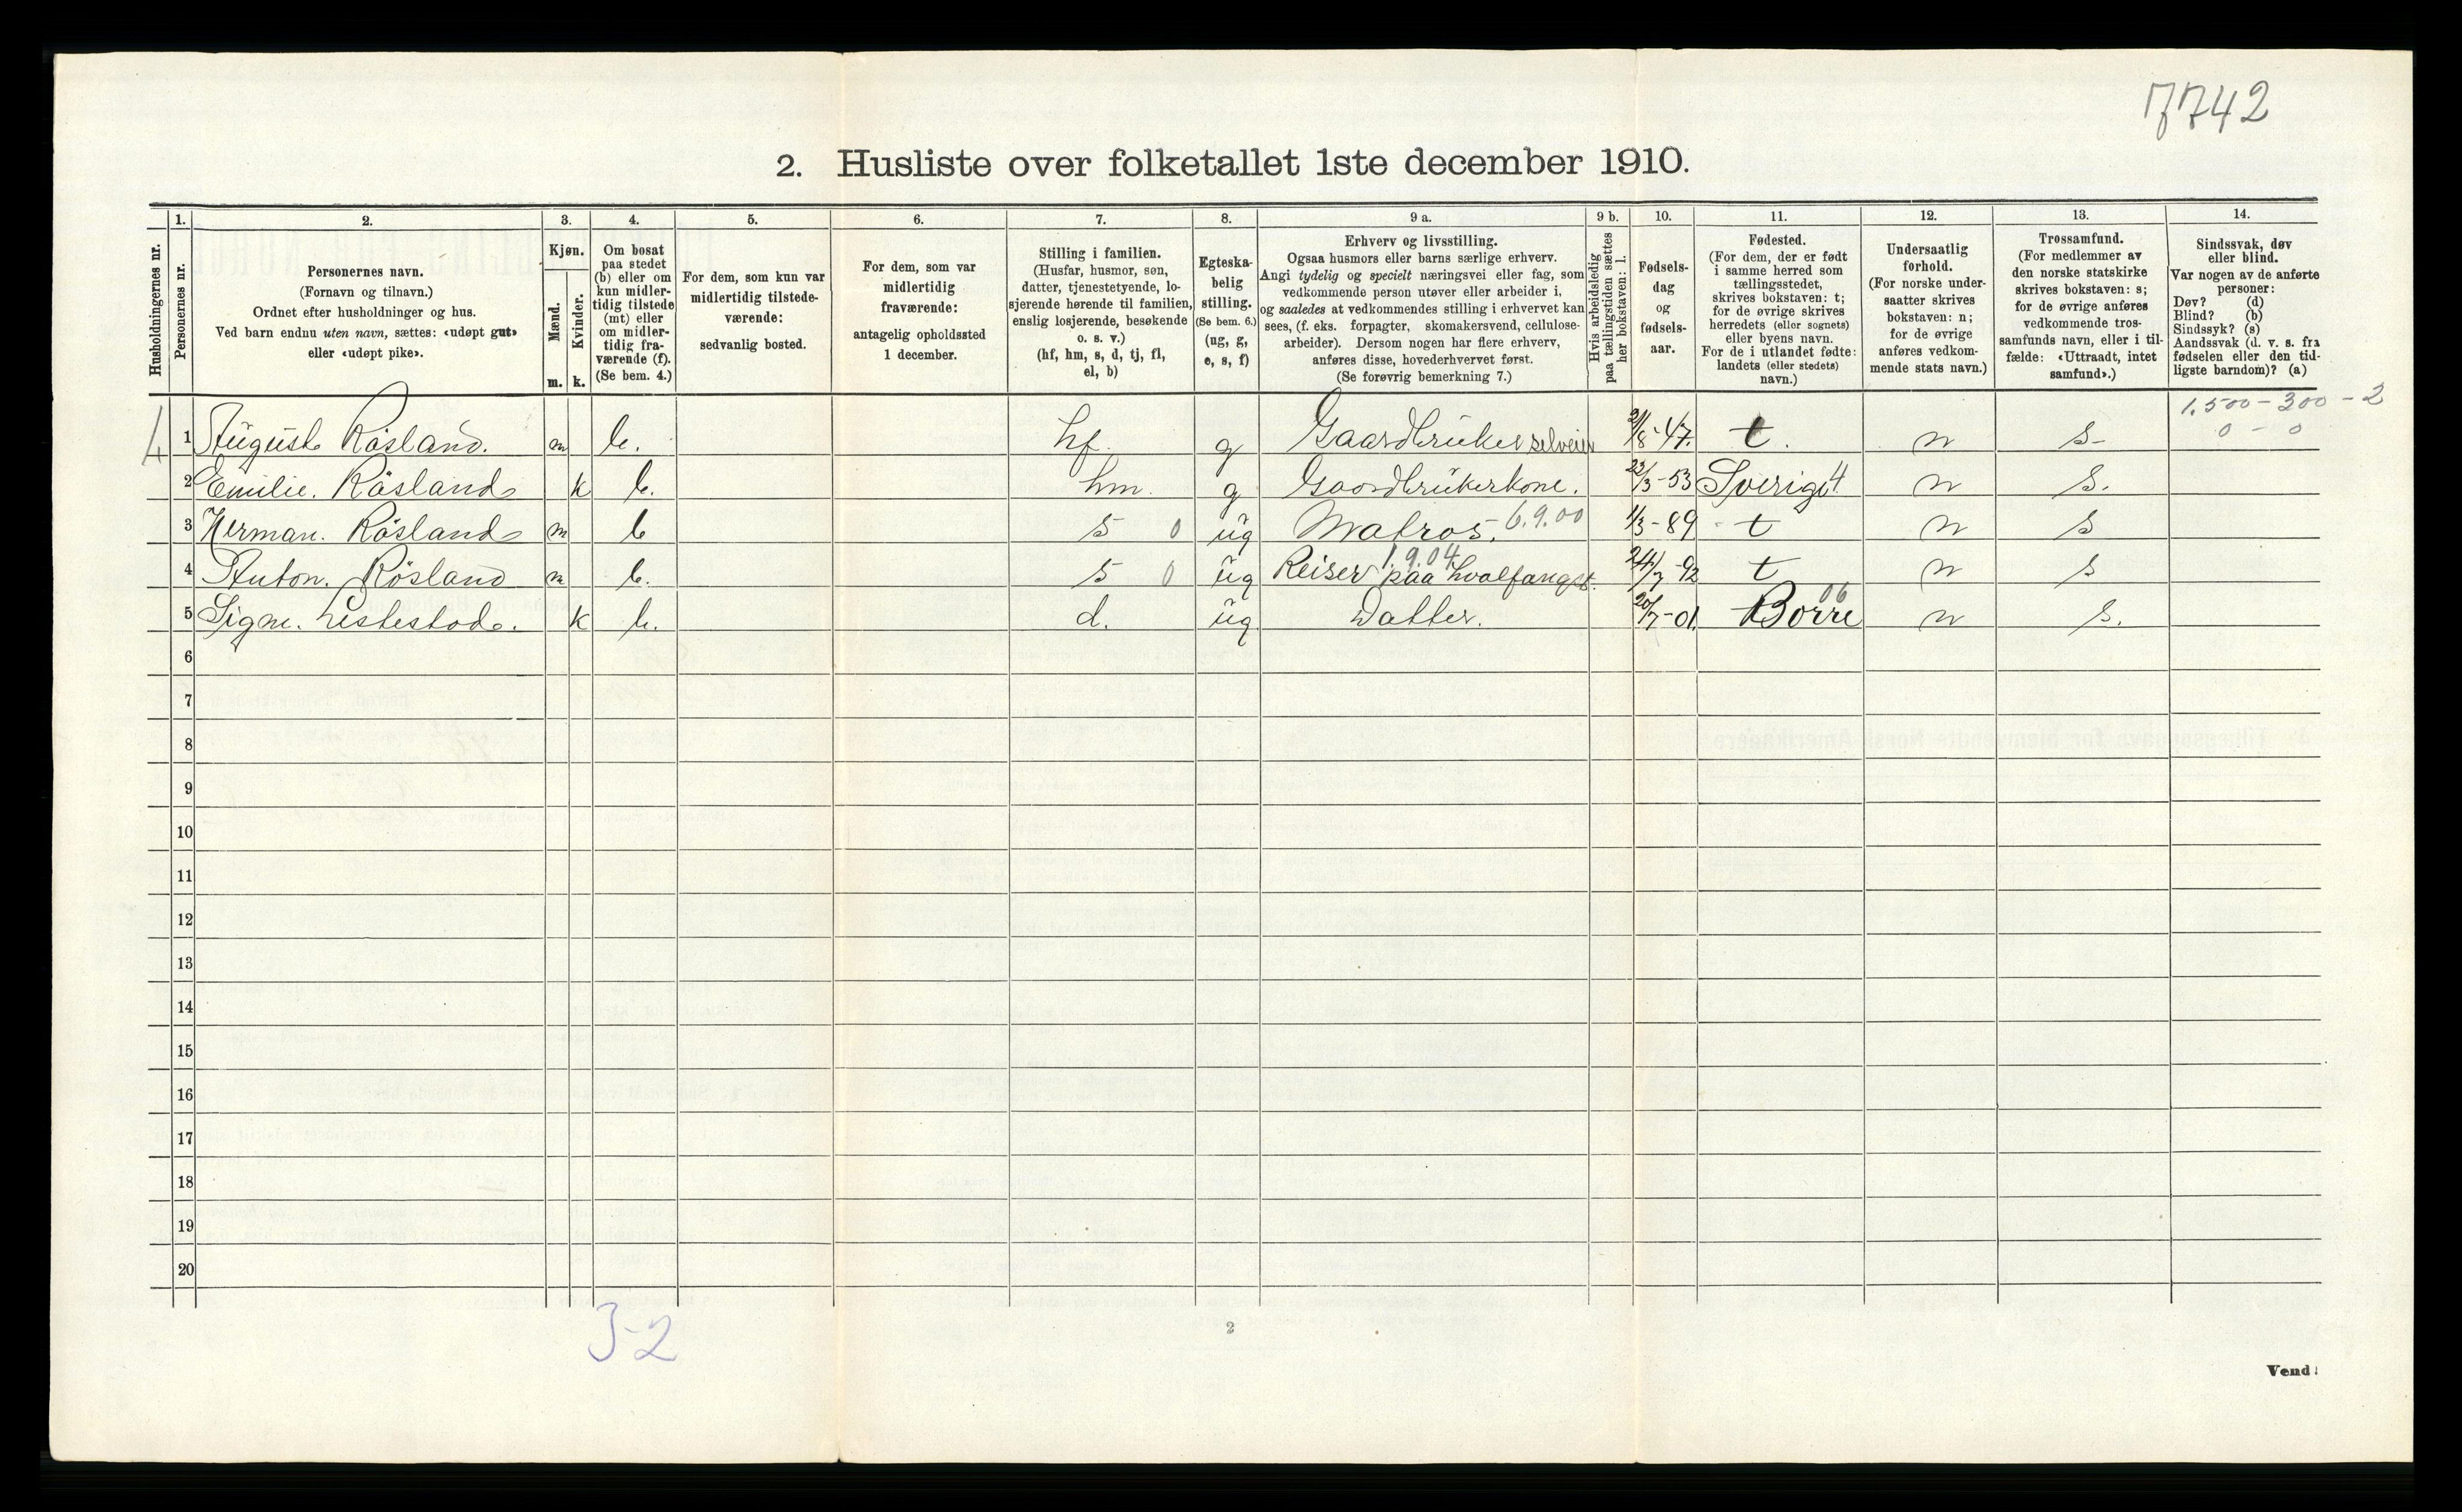 7742
2. Husliste over folketallet 1ste december 1910.
Husholdningernes nr.
1. Personernes nr.
2. Personernes navn.
(Fornavn og tilnavn.)
Ordnet efter husholdninger og hus.
Ved barn endnu uten navn, sættes: «udøpt gut»
eller «udøpt pike».
3. Kjøn.
Mænd. m.
Kvinder. k.
4. Om bosat
paa stedet
(b) eller om
kun midler-
tidig tilstede
(mt) eller
om midler-
tidig fra-
værende (f).
(Se bem. 4.)
5. For dem, som kun var
midlertidig tilstede-
værende:
sedvanlig bosted.
6. For dem, som var
midlertidig
fraværende:
antagelig opholdssted
1 december.
7. Stilling i familien.
(Husfar, husmor, søn,
datter, tjenestetyende, lo-
sjerende hørende til familien,
enslig losjerende, besøkende
o. s. v.)
(hf, hm, s, d, tj, fl,
el, b)
8. Egteska-
belig
stilling.
(Se bem. 6.)
(ug, g,
e, s, f)
9 a. Erhverv og livsstilling.
Ogsaa husmors eller barns særlige erhverv.
Angi tydelig og specielt næringsvei eller fag, som
vedkommende person utøver eller arbeider i,
og saaledes at vedkommendes stilling i erhvervet kan
sees, (f. eks. forpagter, skomakersvend, cellulose-
arbeider). Dersom nogen har flere erhverv,
anføres disse, hovederhvervet først.
(Se forøvrig bemerkning 7.)
9 b. Hvis arbeidsledig
paa tællingstiden sættes
her bokstaven: l.
10. Fødsels-
dag
og
fødsels-
aar.
11. Fødested.
(For dem, der er født
i samme herred som
tællingsstedet,
skrives bokstaven: t;
for de øvrige skrives
herredets (eller sognets)
eller byens navn.
For de i utlandet fødte:
landets (eller stedets)
navn.)
12. Undersaatlig
forhold.
(For norske under-
saatter skrives
bokstaven: n;
for de øvrige
anføres vedkom-
mende stats navn.)
13. Trossamfund.
(For medlemmer av
den norske statskirke
skrives bokstaven: s;
for de øvrige anføres
vedkommende tros-
samfunds navn, eller i til-
fælde: «Uttraadt, intet
samfund».)
14. Sindssvak, døv
eller blind.
Var nogen av de anførte
personer:
Døv? (d)
Blind? (b)
Sindssyk? (s)
Aandssvak (d. v. s. fra
fødselen eller den tid-
ligste barndom)? (a)
1.500 - 300 - 2
0 - 0
1 August Råsland. m b. hf. g Gaardbruker selveier 21/8-47. t. n s-
2 Emilie. Råsland k b. hm. g Gaardbrukerkone. 23/3-53 Sverige 4 n s.
3 Herman. Råsland m b s 0 ug Matros. 6.9.00 1/3-89 t n s
4 Anton. Råsland m b. s 0 ug Reiser paa hvalfangst. 1.9.04 24/7-92 t n s
5 Signe. k b. d. ug Datter. 20/7-01 Borre 06 n s.
6
7
8
9
10
11
12
13
14
15
16
17
18
19
20
3-2
2
Vend!